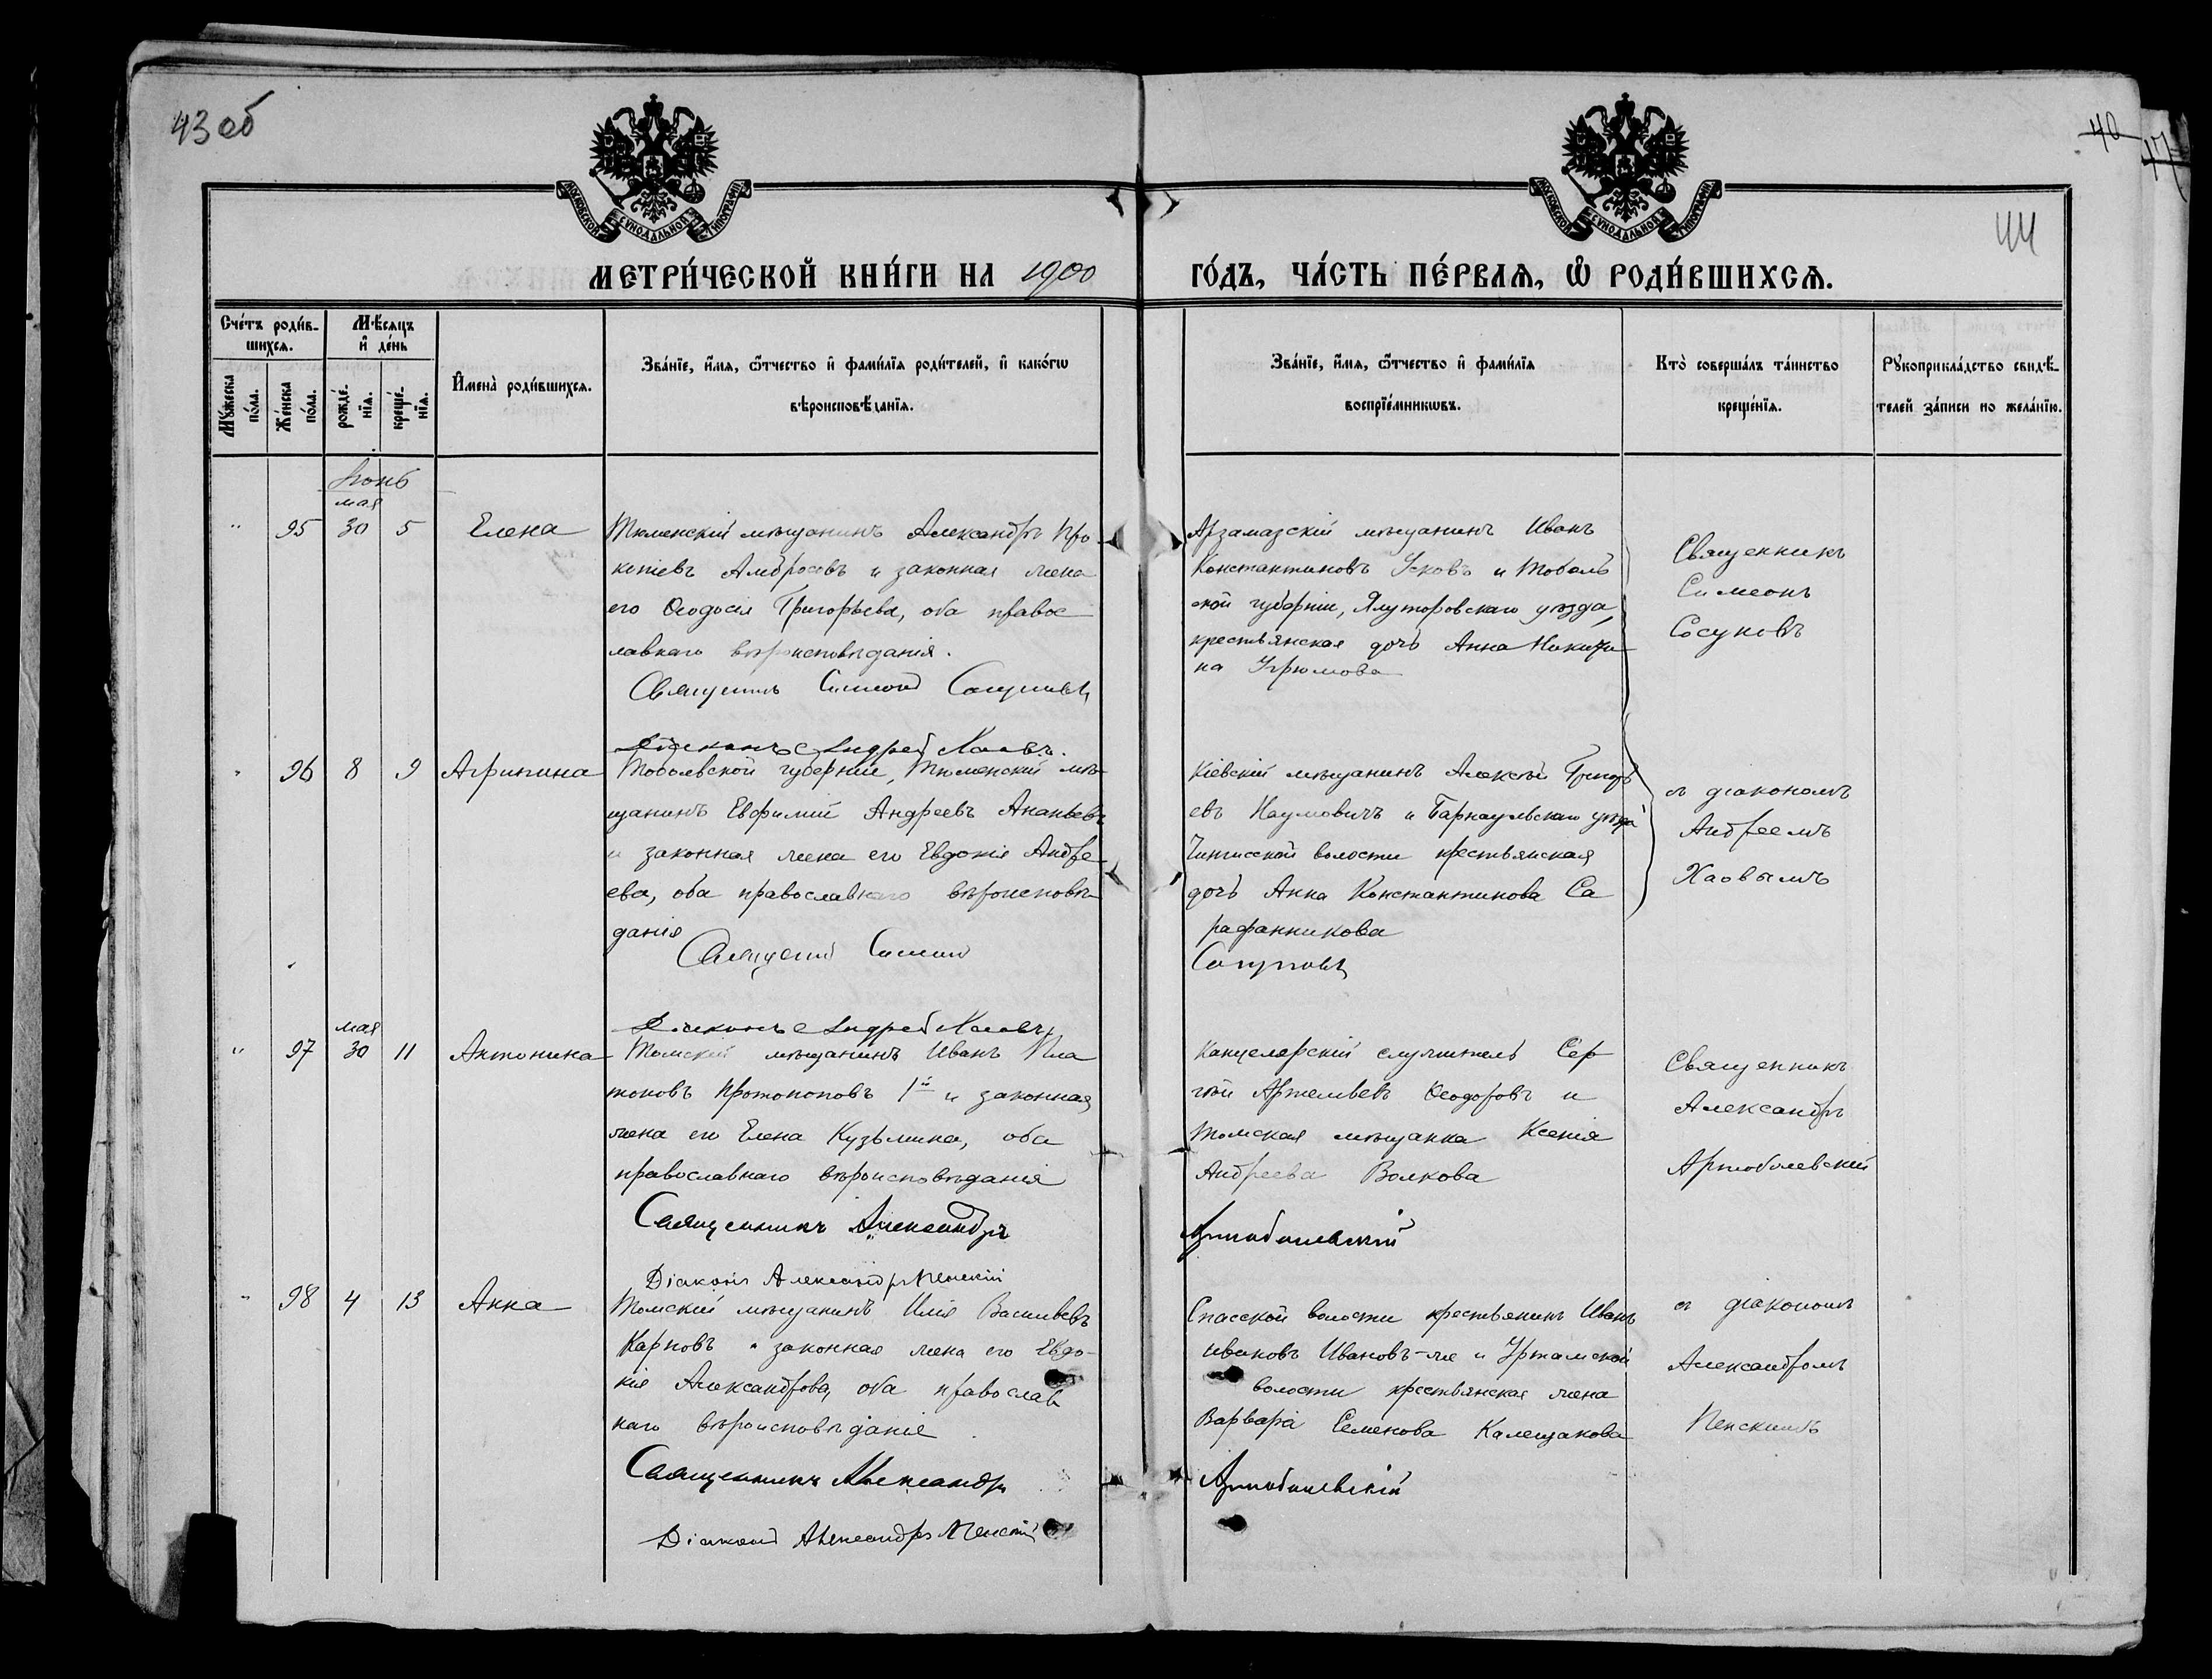 43 об
40
44
МОСКОВСКОЙ СѴНОДАЛЬНОЙ ТИПОГРАФІИ
МОСКОВСКОЙ СѴНОДАЛЬНОЙ ТИПОГРАФІИ
МЕТРИ́ЧЕСКОЙ КНИ́ГИ НА 1900
ГО́ДЪ, ЧА́СТЬ ПЕ́РВАѦ, Ѡ РОДИ́ВШИХСѦ.
Сче́тъ роди́в-
шихсѧ.
Мѣ́сѧцъ
и҆ де́нь
Мꙋ́жеска
по́ла.
Же́нска
по́ла.
рожде́-
нїѧ.
креще́-
нїѧ.
И҆мена̀ роди́вшихсѧ.
Зва́нїе, и҆́мѧ, ѻ҆́тчество и҆ фами́лїѧ роди́телей, и҆ како́гѡ
вѣроисповѣ́данїѧ.
Зва́нїе, и҆́мѧ, ѻ҆́тчество и҆ фами́лїѧ
воспрїе́мникѡвъ.
Кто̀ соверша́лъ та́инство
креще́нїѧ.
Рꙋкоприкла́дство свидѣ́-
телей за́писи по жела́нїю.
Іюнь
мая
" 95 30 5 Елена
Тюменскій мѣщанинъ Александръ Про-
копіевъ Амбросовъ и законная жена
его Ѳеодосія Григорьева, оба правос
лавнаго вѣроисповѣданія.
Священникъ Симеонъ Сосуновъ
Діаконъ Андрей Хаовъ.
Арзамазскій мѣщанинъ Иванъ
Константиновъ Усковъ и Тоболь
ской губерніи, Ялуторовскаго уѣзда,
крестьянская дочь Анна Никити
на Угрюмова
Священникъ
Симеонъ
Сосуновъ
" 96 8 9 Агрипина
Тобольской губерніи, Тюменскій мѣ-
щанинъ Евфимій Андреевъ Ананьевъ
и законная жена его Евдокія Андре
ева, оба православнаго вѣроисповѣ-
данія
Священникъ Симеонъ
Сосуновъ
Діаконъ Андрей Хаовъ
Кіевскій мѣщанинъ Алексѣй Григорь
евъ Наумовичъ и Барнаульскаго уѣзда
Чингисской волости крестьянская
дочь Анна Константинова Са
рафанникова
съ діакономъ
Андреемъ
Хаовымъ
мая
" 97 30 11 Антонина
Томскій мѣщанинъ Иванъ Пла
тоновъ Протопоповъ 1й и законная
жена его Елена Кузьмина, оба
православнаго вѣроисповѣданія
Священникъ Александръ
Артоболевскій
Діаконъ Александръ Пенскій
Канцелярскій служитель Сер
гѣй Артемьевъ Ѳеодоровъ и
Томская мѣщанка Ксенія
Андреева Волкова
Священникъ
Александръ
Артоболевскій
" 98 4 13 Анна
Томскій мѣщанинъ Илія Васильевъ
Карповъ и законная жена его Евдо-
кія Александрова, оба православ
наго вѣроисповѣданіе
Священникъ Александръ
Артоболевскій
Діаконъ Александръ Пенскій
Спасской волости крестьянинъ Иванъ
Ивановъ Ивановъ-же и Уртамской
волости крестьянская жена
Варвара Семенова Калещакова
съ діакономъ
Александромъ
Пенскимъ